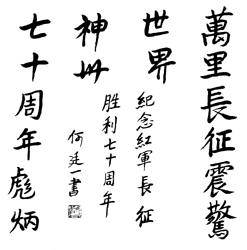 萬里長征震驚
世界
七十周年彪炳
神州
紀念紅軍長征
勝利七十周年
何廷一書